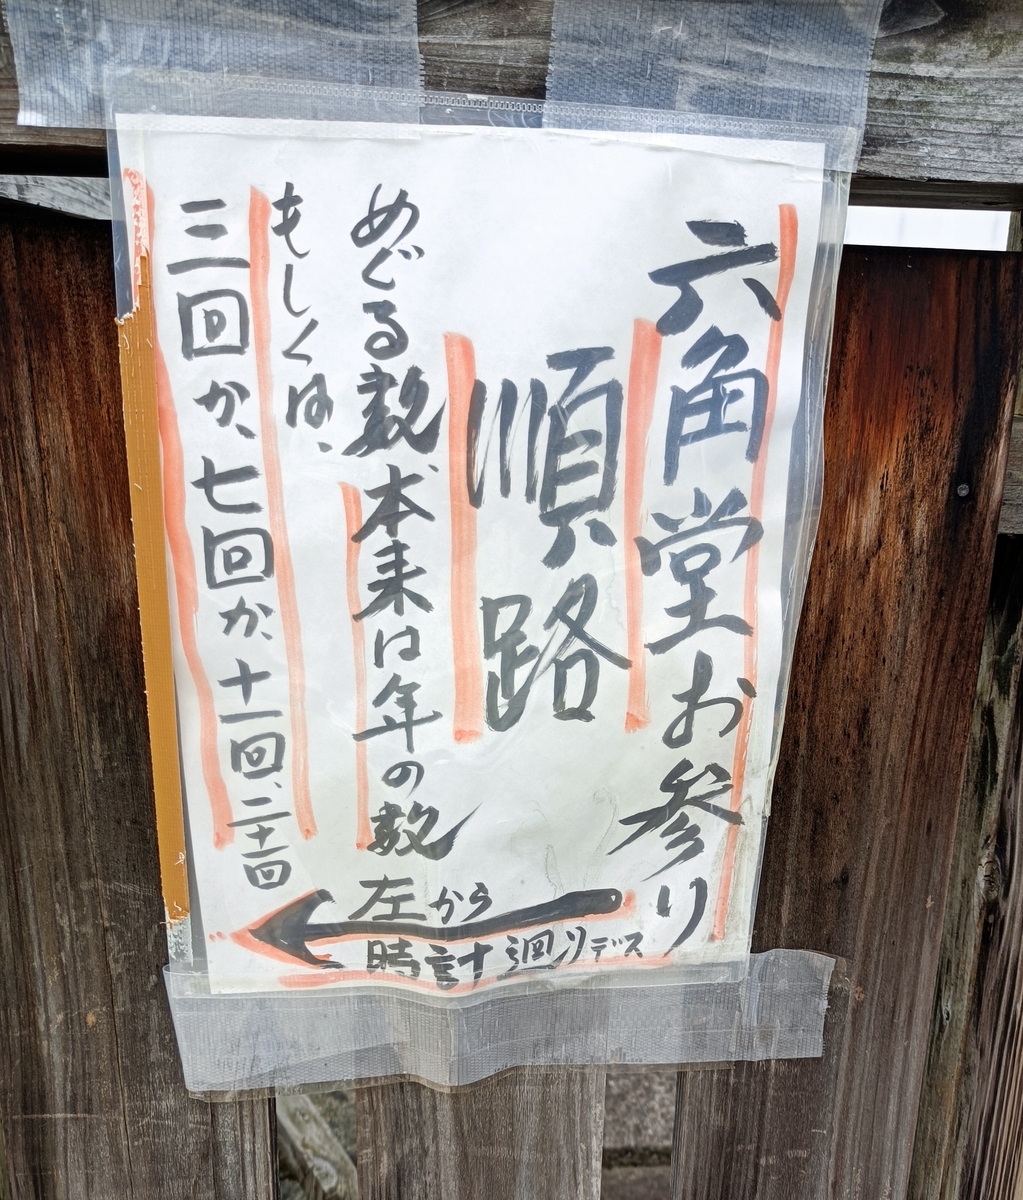 六角堂お参り
順路
めぐる数本来は年の数
もしくは、
三回か、七回か、十一回、二十一回
左から
時計廻りデス